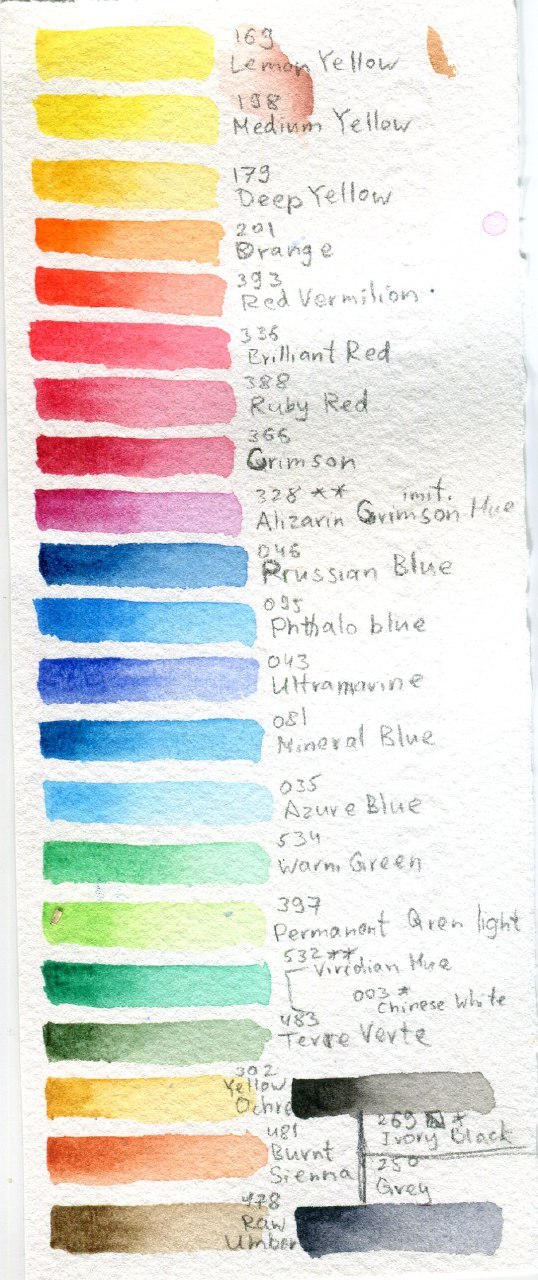 169
Lemon Yellow
198
Medium Yellow
179
Deep Yellow
201
Orange
393
Red Vermilion
336
Brilliant Red
388
Ruby Red
366
Crimson
328 ** imit.
Alizarin Crimson Hue
046
Prussian Blue
095
Phthalo blue
043
Ultramarine
081
Mineral Blue
035
Azure Blue
534
Warm Green
397
Permanent Qren light
532**
Viridian Hue
003 *
Chinese White
483
Terre Verte
302
Yellow
Ochre
269 *
Ivory Black
481
Burnt
Sienna
250
Grey
478
Raw
Umber